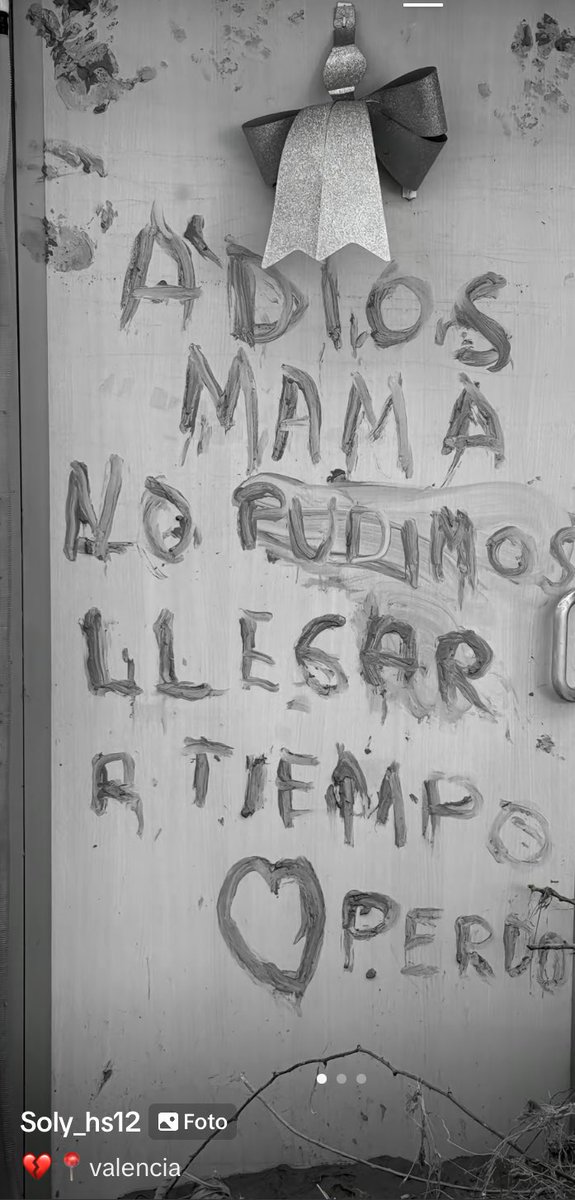 ADIOS
MAMA
NO PUDIMOS
LLEGAR
A TIEMPO
PERDO
Soly_hs12 Foto
💔📍 valencia